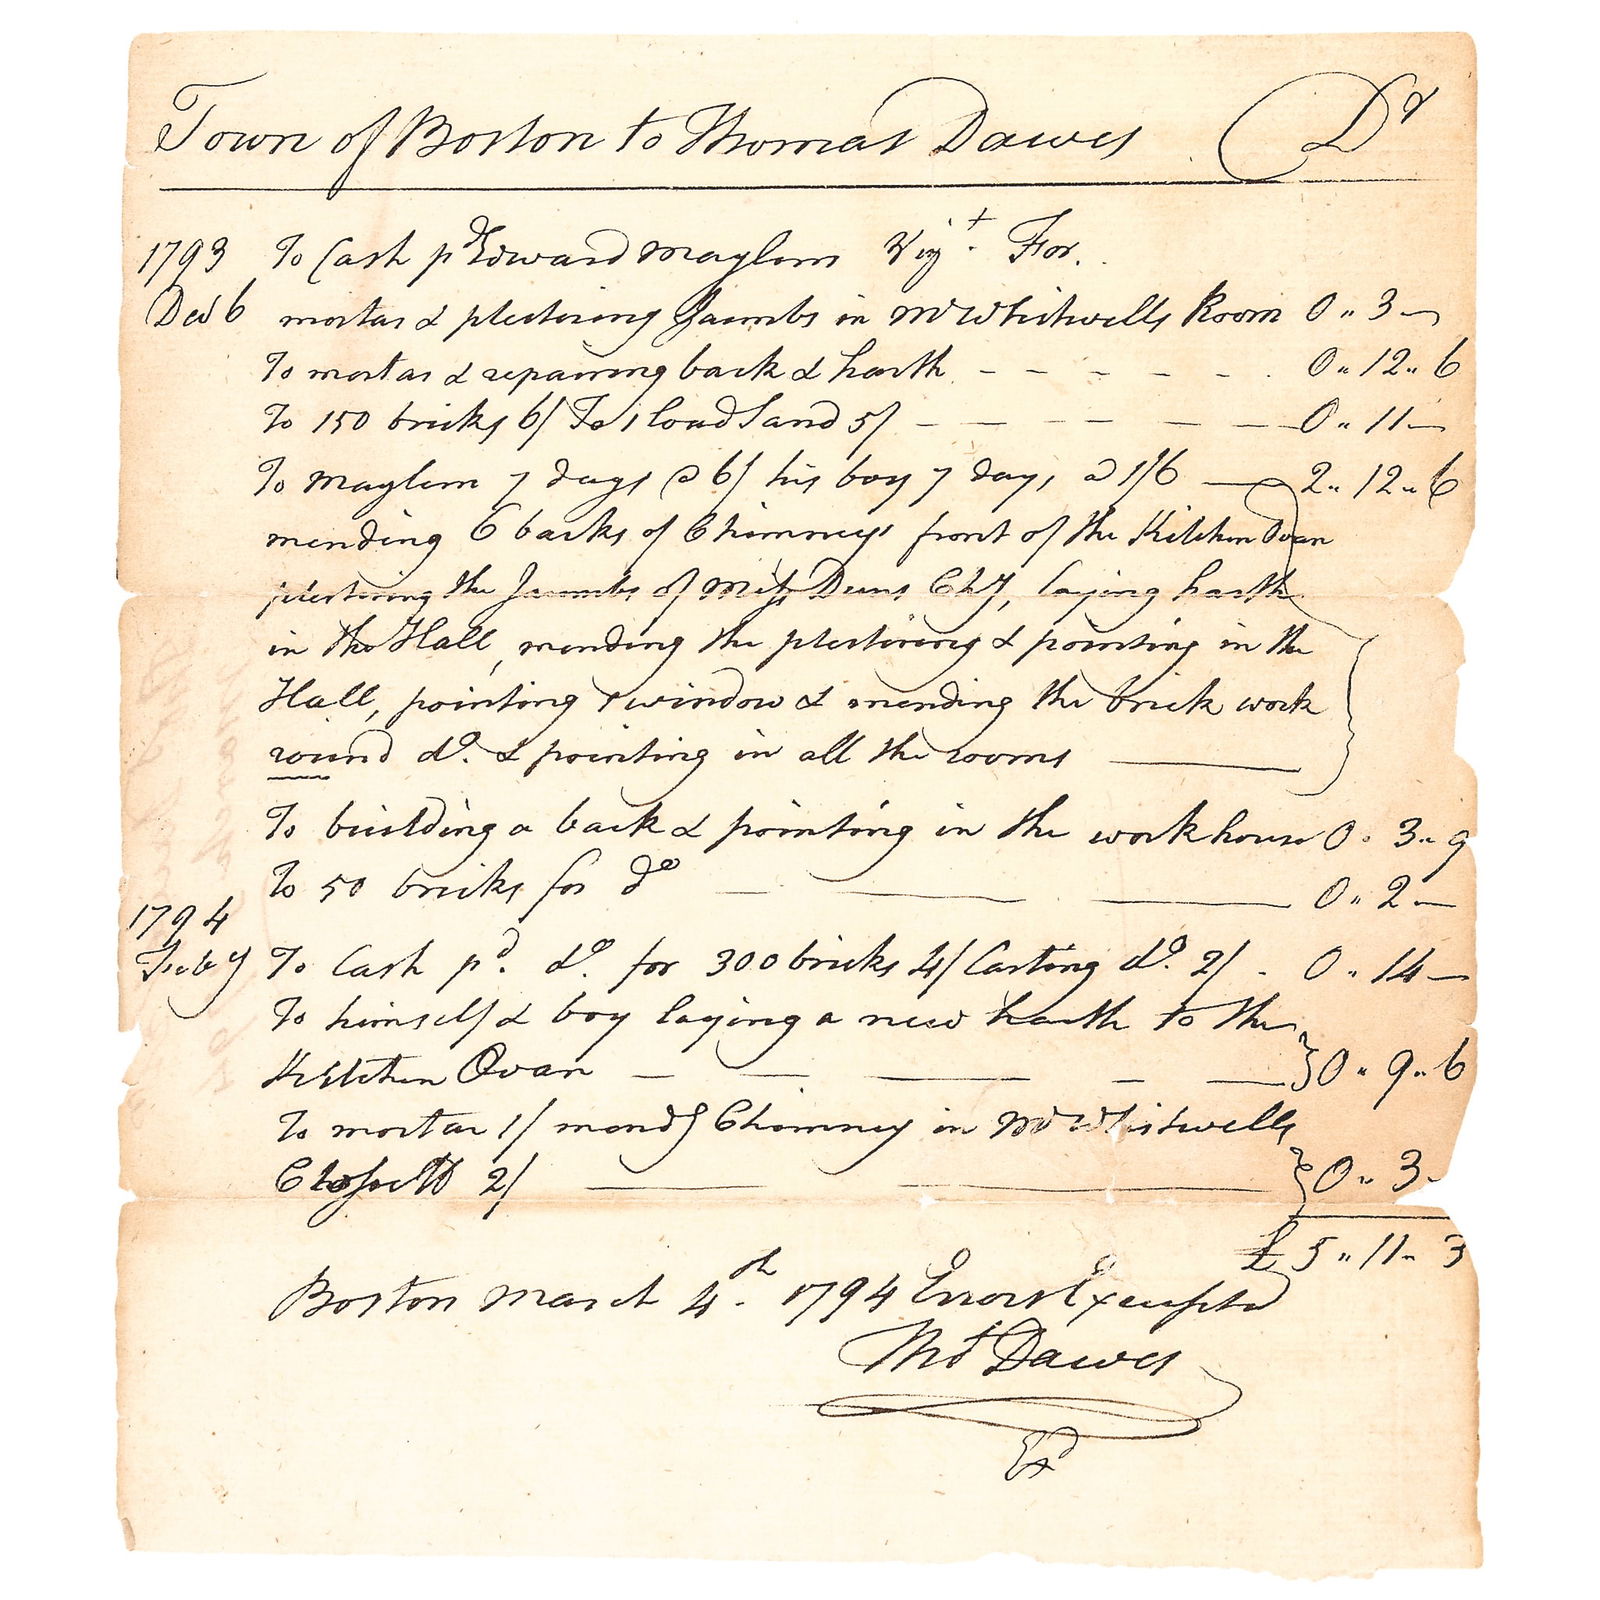 Town of Boston to Thomas Dawes Dr
1793 To Cash pd Edward Maylem Vizt. For.
Decr 6 mortar & plestering Jaumbs in Mr Whitwells Room 0 " 3 —
To mortar & repairing back & harth - - - - - - 0 " 12 " 6
To 150 bricks 6/ To 1 load Sand 5/ - - - - - - 0 " 11 —
To Maylem 7 days @ 6/ his boy 7 days @ 1/6 — 2 " 12 " 6
mending 6 backs of Chimneys front of the Kitchen Ovan
plestering the Jaumbs of Chy, laying harth
in the Hall, mending the plestering & pointing in the
Hall, pointing window & mending the brick work
round do. & pointing in all the rooms —
To building a back & pointing in the work house 0 " 3 " 9
To 50 bricks for do — — 0 " 2 —
1794
Feby To Cash pd. do. for 300 bricks 4/ Carting do. 2/ - 0 " 14 —
To himself & boy laying a new harth to the
Kitchen Ovan — — — — — 0 " 9 " 6
To mortar 1/ mendg Chimney in Mr Whitwells
Clossett 2/ — — 0 " 3 -
£ 5 " 11 " 3
Boston March 4th. 1794 Errors Excepted
Tho Dawes
Exd